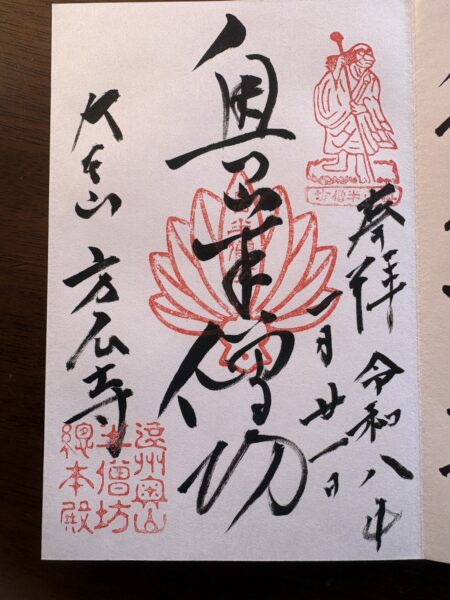 奉拝 令和八年
一月廿一日
奥山半僧坊
大本山 方広寺
遠州奥山
半僧坊
總本殿